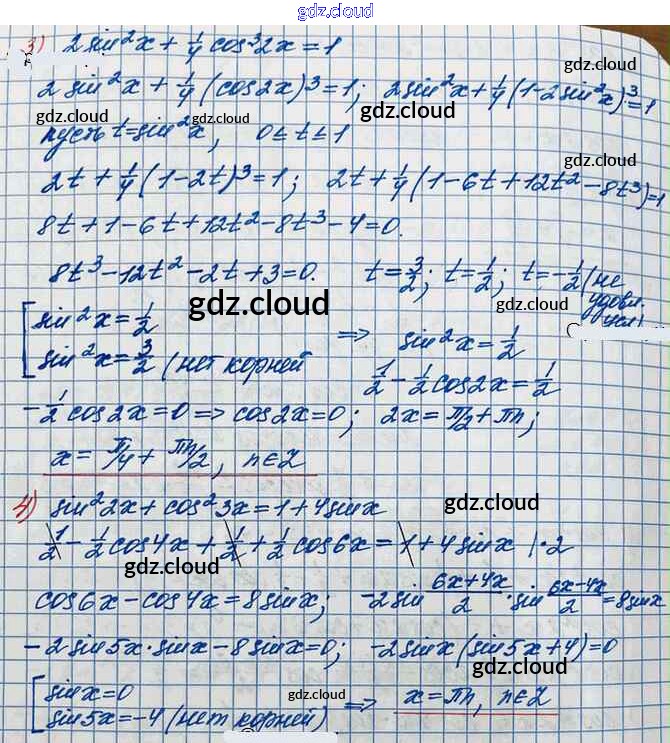 gdz.cloud
3) 2sin²x + 1/4 cos³2x = 1
gdz.cloud
2sin²x + 1/4 (cos2x)³ = 1; 2sin²x + 1/4 (1-2sin²x)³ = 1
gdz.cloud gdz.cloud
пусть t = sin²x, 0 ≤ t ≤ 1
gdz.cloud
2t + 1/4 (1-2t)³ = 1; 2t + 1/4 (1-6t+12t²-8t³) = 1
8t + 1 - 6t + 12t² - 8t³ - 4 = 0.
8t³ - 12t² - 2t + 3 = 0. t = 3/2; t = 1/2; t = -1/2 (не удовл. усл)
gdz.cloud gdz.cloud
[ sin²x = 1/2
sin²x = 3/2 (нет корней => sin²x = 1/2
1/2 - 1/2 cos2x = 1/2
-1/2 cos2x = 0 => cos2x = 0; 2x = π/2 + πn;
x = π/4 + πn/2, n∈Z
4) sin²2x + cos²3x = 1 + 4sinx
gdz.cloud
1/2 - 1/2 cos4x + 1/2 + 1/2 cos6x = 1 + 4sinx |·2
gdz.cloud
cos6x - cos4x = 8sinx; -2sin (6x+4x)/2 · sin (6x-4x)/2 = 8sinx
-2sin5x·sinx - 8sinx = 0; -2sinx(sin5x+4) = 0
gdz.cloud
[ sinx = 0
sin5x = -4 (нет корней) => x = πn, n∈Z
gdz.cloud
gdz.cloud